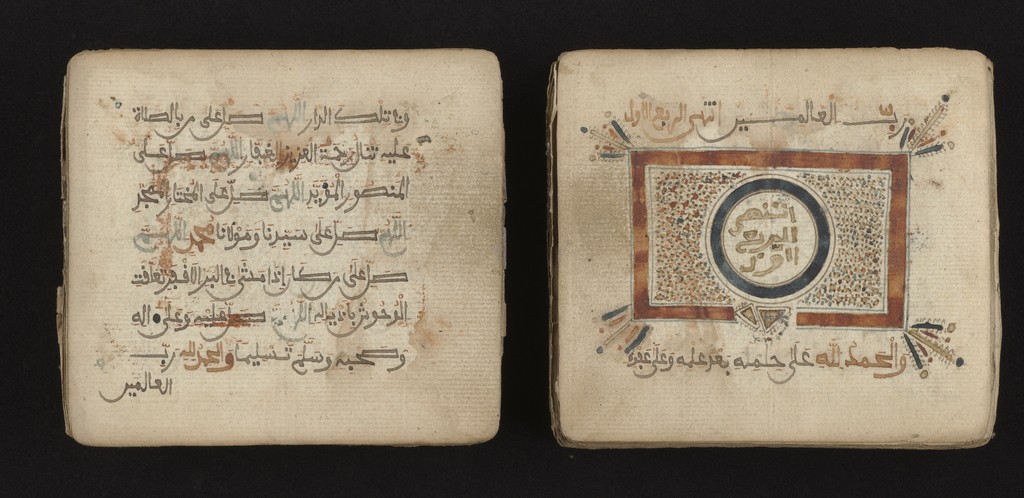 وفي تلك الدار اللهم صل على من بالصلاة
عليه تنال رحمة العزيز الغفار اللهم صل على
المنصور المؤيد اللهم صل على المختار الممجد
اللهم صل على سيدنا ومولانا محمد اللهم
صل على من كان إذا مشى في البر الأقفر تعلقت
الوحوش بأذياله اللهم صل عليه وعلى اله
وصحبه وسلم تسليما والحمد لله رب
العالمين
رب العالمين انتهى الربع الاول
انتهى
الربع
الاول
والحمد لله على حلمه بعد علمه وعلى عفوه